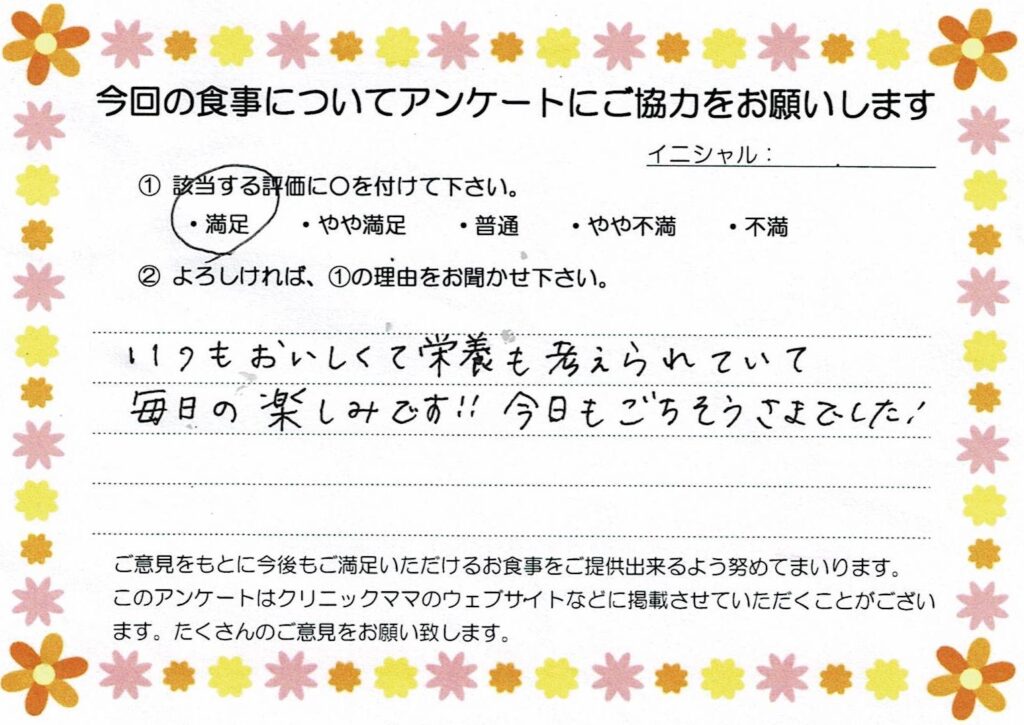 今回の食事についてアンケートにご協力をお願いします
イニシャル：
① 該当する評価に〇を付けて下さい。
・満足 ・やや満足 ・普通 ・やや不満 ・不満
② よろしければ、①の理由をお聞かせ下さい。
いつもおいしくて栄養も考えられていて
毎日の楽しみです!! 今日もごちそうさまでした!
ご意見をもとに今後もご満足いただけるお食事をご提供出来るよう努めてまいります。
このアンケートはクリニックママのウェブサイトなどに掲載させていただくことがござい
ます。たくさんのご意見をお願い致します。